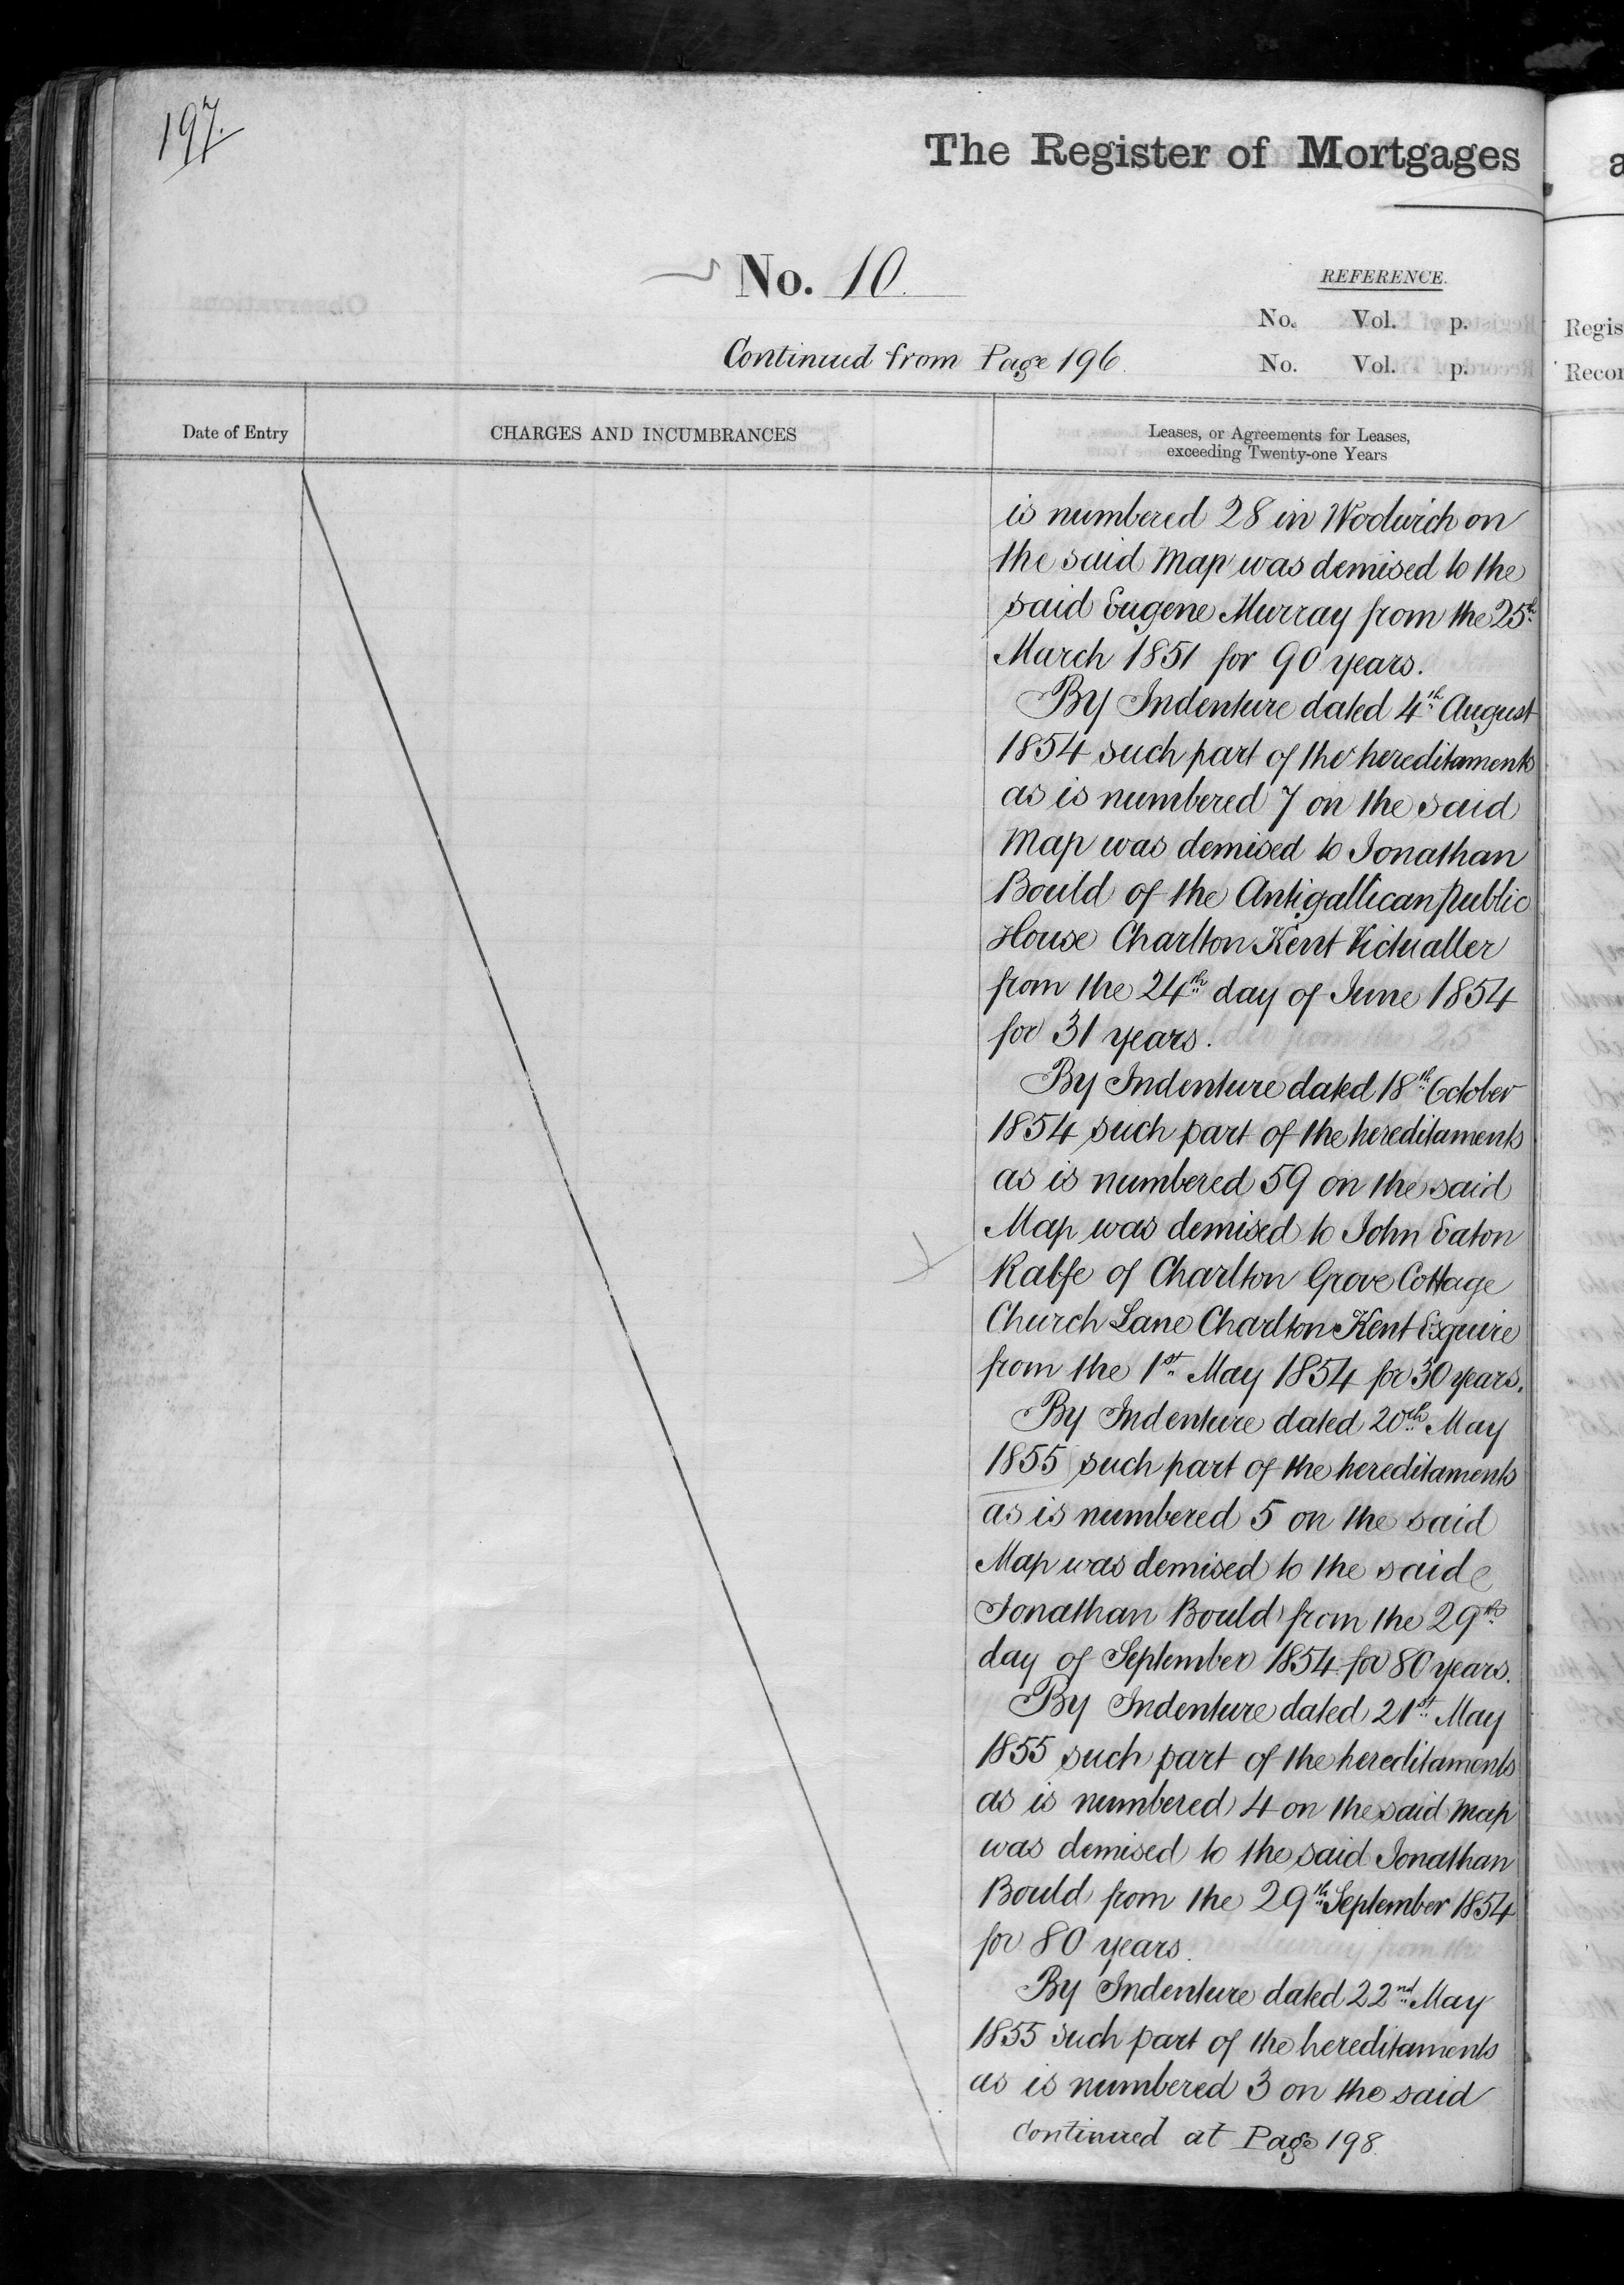 197.
The Register of Mortgages
No. 10.
REFERENCE.
No. Vol. p.
Continued from Page 196.
No. Vol. p.
Regis
Recor
Date of Entry
CHARGES AND INCUMBRANCES
Leases, or Agreements for Leases,
exceeding Twenty-one Years
is numbered 28 in Woolwich on
the said Map was demised to the
said Eugene Murray from the 25th
March 1851 for 90 years.
By Indenture dated 4th August
1854 such part of the hereditaments
as is numbered 7 on the said
Map was demised to Jonathan
Bould of the Antigallican public
House Charlton Kent Victualler
from the 24th day of June 1854
for 31 years.
By Indenture dated 18th October
1854 such part of the hereditaments
as is numbered 59 on the said
Map was demised to John Eaton
Ralfe of Charlton Grove Cottage
Church Lane Charlton Kent Esquire
from the 1st May 1854 for 30 years.
By Indenture dated 20th May
1855 such part of the hereditaments
as is numbered 5 on the said
Map was demised to the said
Jonathan Bould from the 29th
day of September 1854 for 80 years.
By Indenture dated 21st May
1855 such part of the hereditaments
as is numbered 4 on the said Map
was demised to the said Jonathan
Bould from the 29th September 1854
for 80 years.
By Indenture dated 22nd May
1855 such part of the hereditaments
as is numbered 3 on the said
Continued at Page 198.